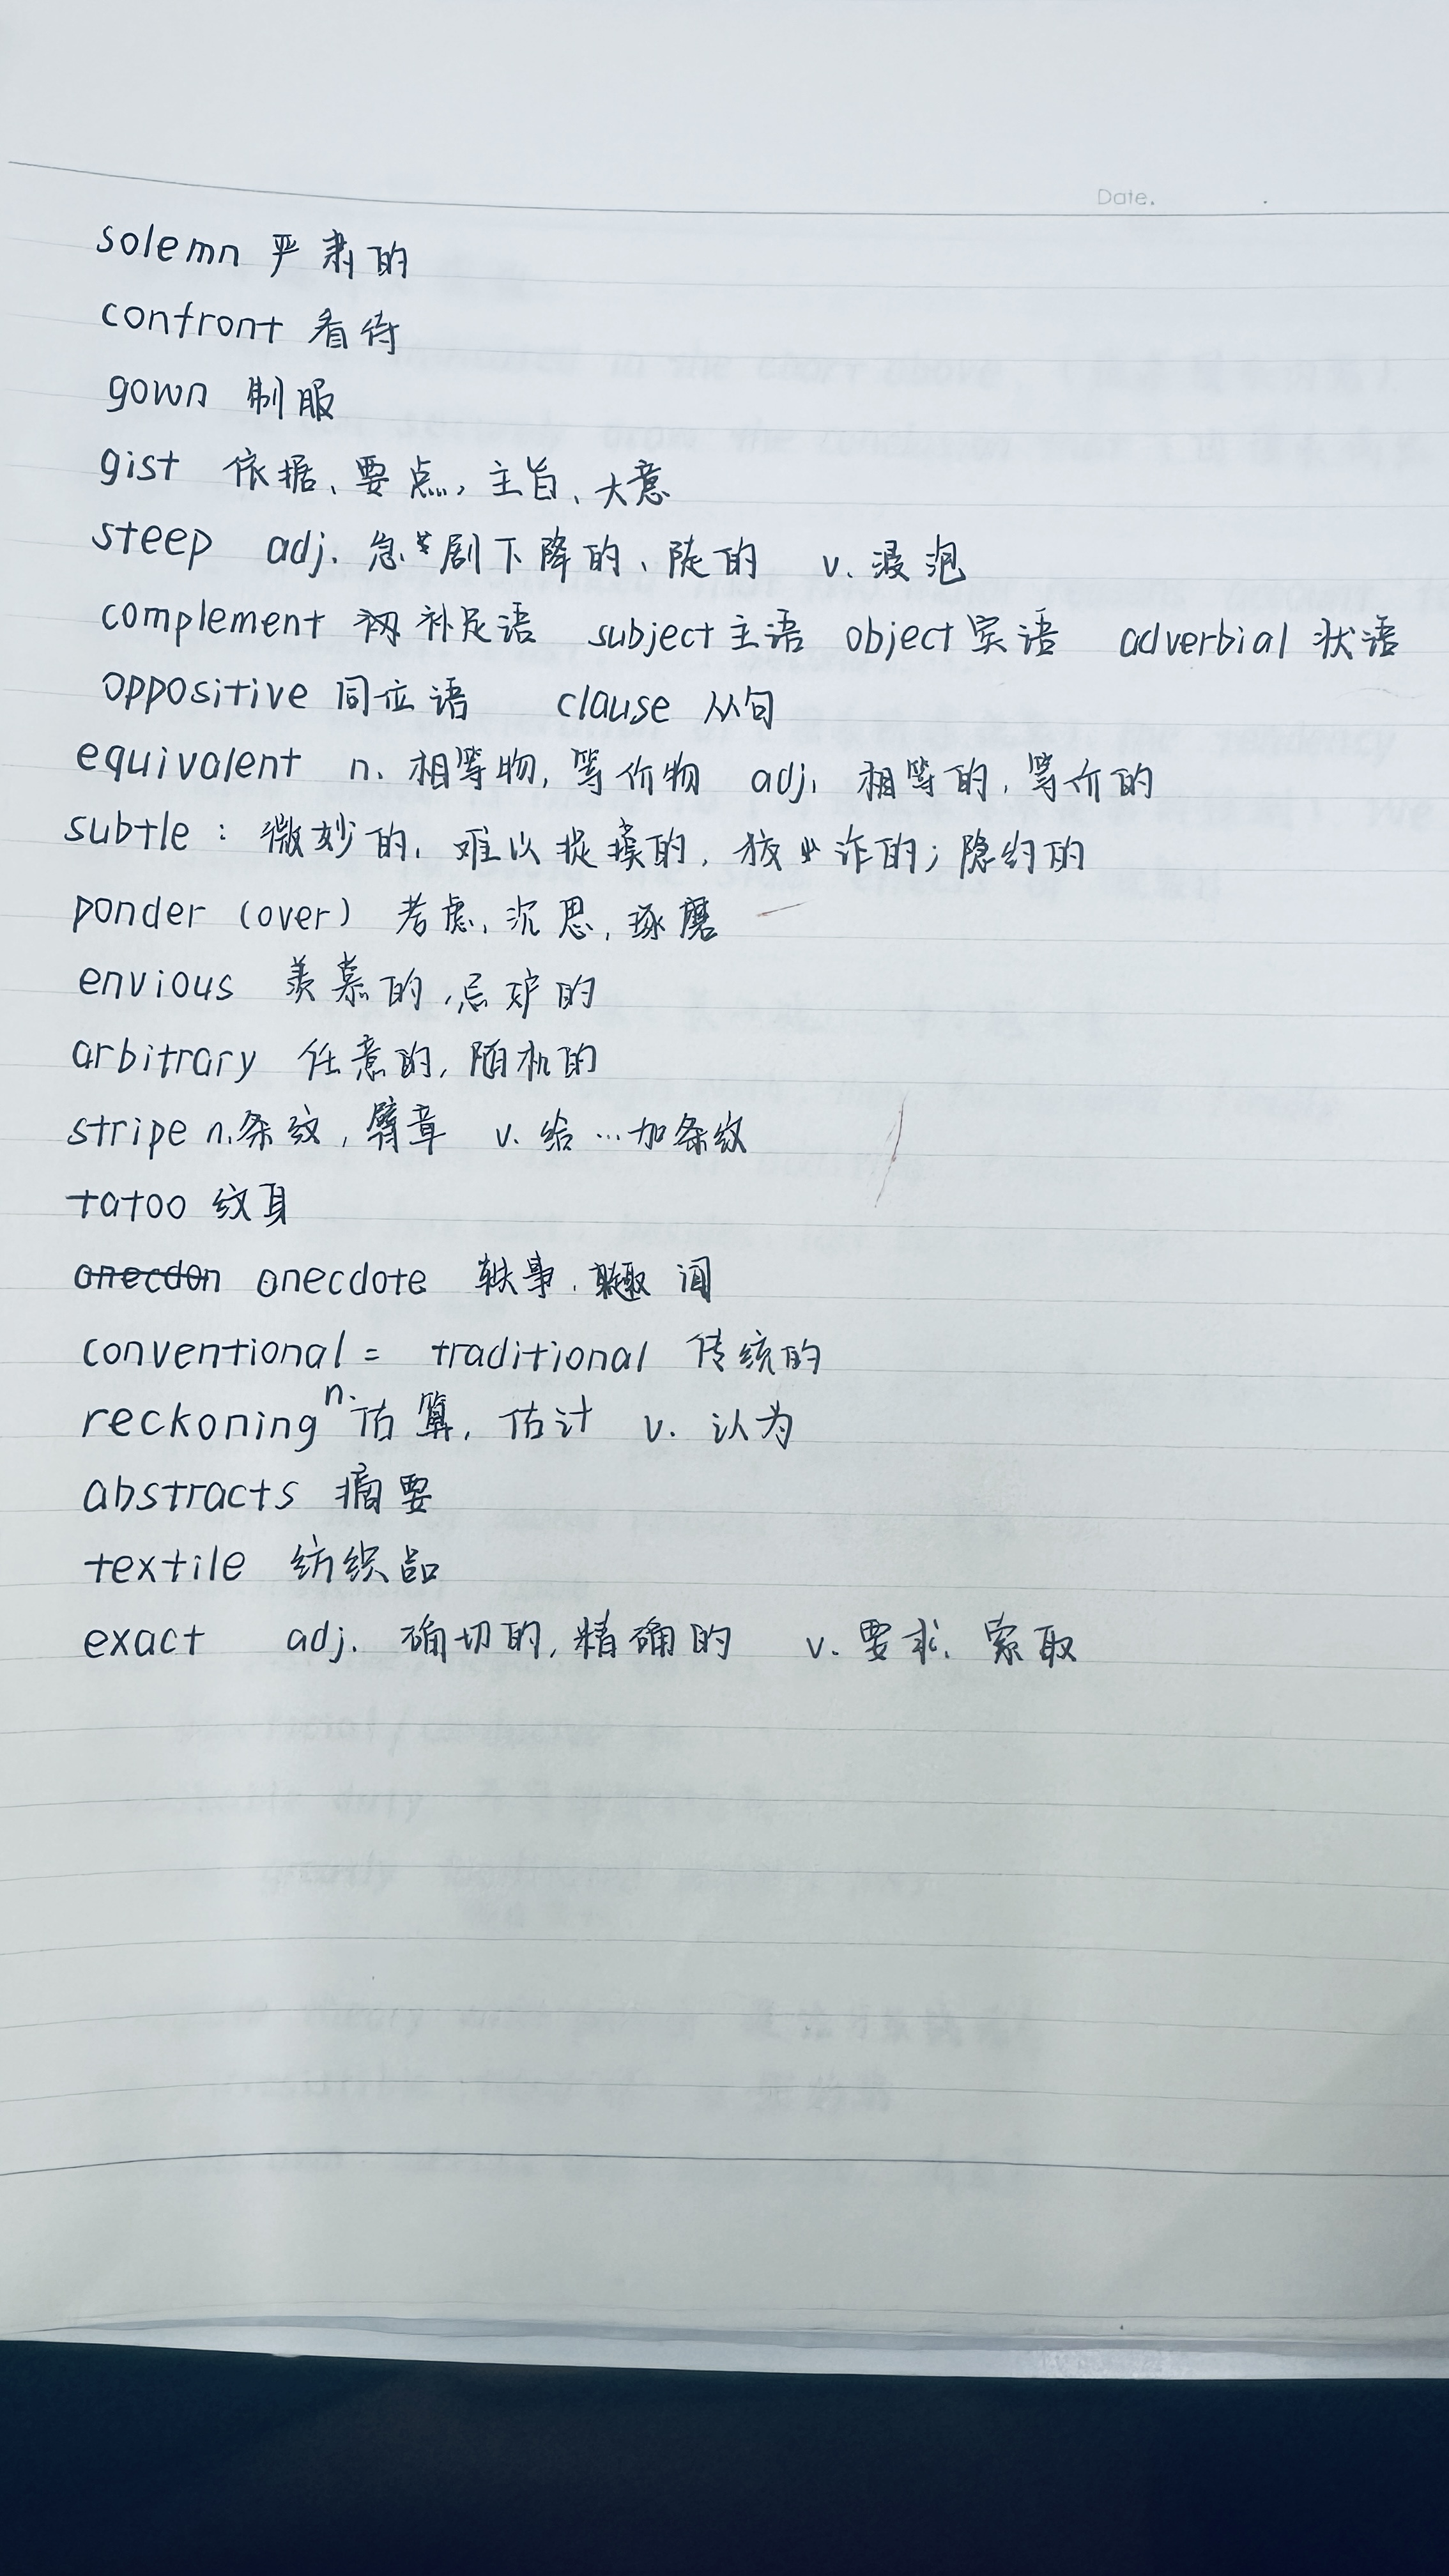 Date.
solemn 严肃的
confront 看待
gown 制服
gist 依据、要点，主旨、大意
steep adj. 急剧下降的、陡的 v. 浸泡
complement 补足语 subject 主语 object 宾语 adverbial 状语
oppositive 同位语 clause 从句
equivalent n. 相等物, 等价物 adj. 相等的, 等价的
subtle : 微妙的, 难以捉摸的, 狡诈的; 隐约的
ponder (over) 考虑, 沉思, 琢磨
envious 羡慕的, 忌妒的
arbitrary 任意的, 随机的
stripe n. 条纹, 臂章 v. 给…加条纹
tatoo 纹身
anecdon anecdote 轶事, 趣闻
conventional = traditional 传统的
reckoning n. 估算, 估计 v. 认为
abstracts 摘要
textile 纺织品
exact adj. 确切的, 精确的 v. 要求, 索取